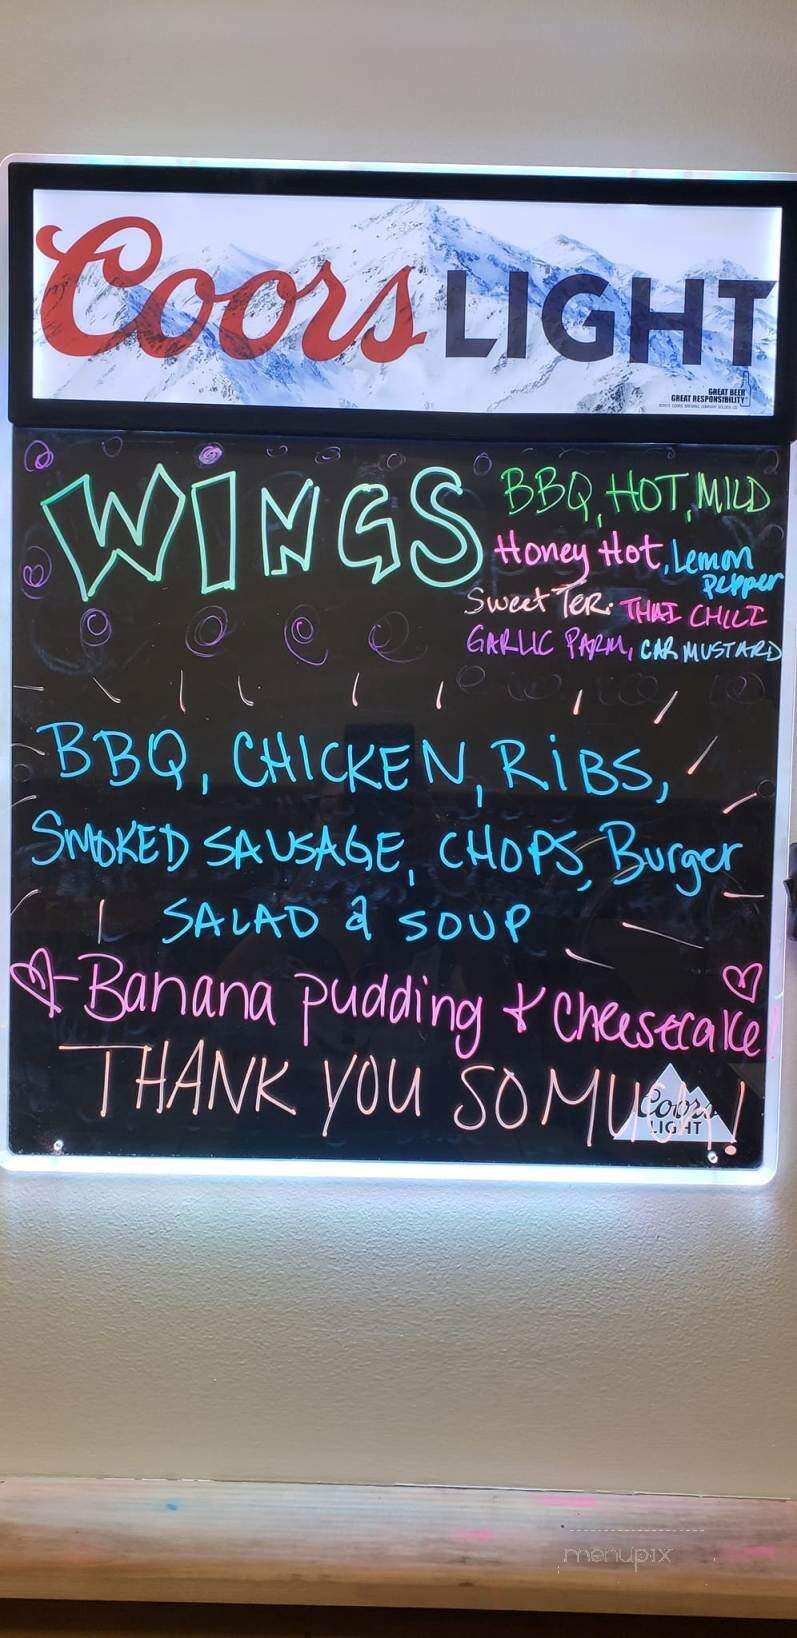 Coors LIGHT
GREAT BEER
GREAT RESPONSIBILITY
WINGS
BBQ, HOT, MILD
Honey Hot, Lemon
pepper
Sweet Ter. THAI CHILI
GARLIC PARM, CAR MUSTARD
BBQ, CHICKEN, RiBS,
SMOKED SAUSAGE, CHOPS, Burger
SALAD & SOUP
Banana pudding & cheesecake!
THANK YOU SO MUCH!
Coors
LIGHT
menupix